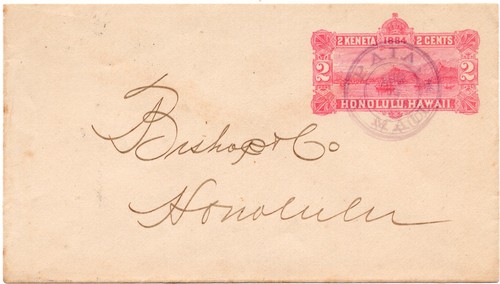 2 KENETA 1884 2 CENTS
2 2
HONOLULU HAWAII
PAIA
MAUI
Bishop & Co
Honolulu